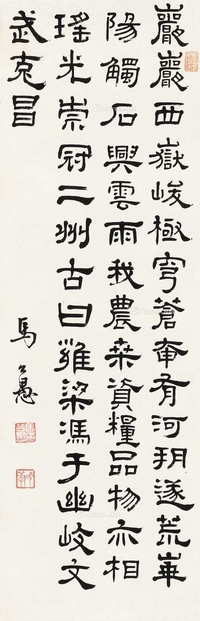 巖巖西嶽峻極穹蒼奄有河朔遂荒崋
陽觸石興雲雨我農桒資糧品物亦相
瑤光崇冠二州古曰雝梁馮于豳岐文
武克昌
馬公愚